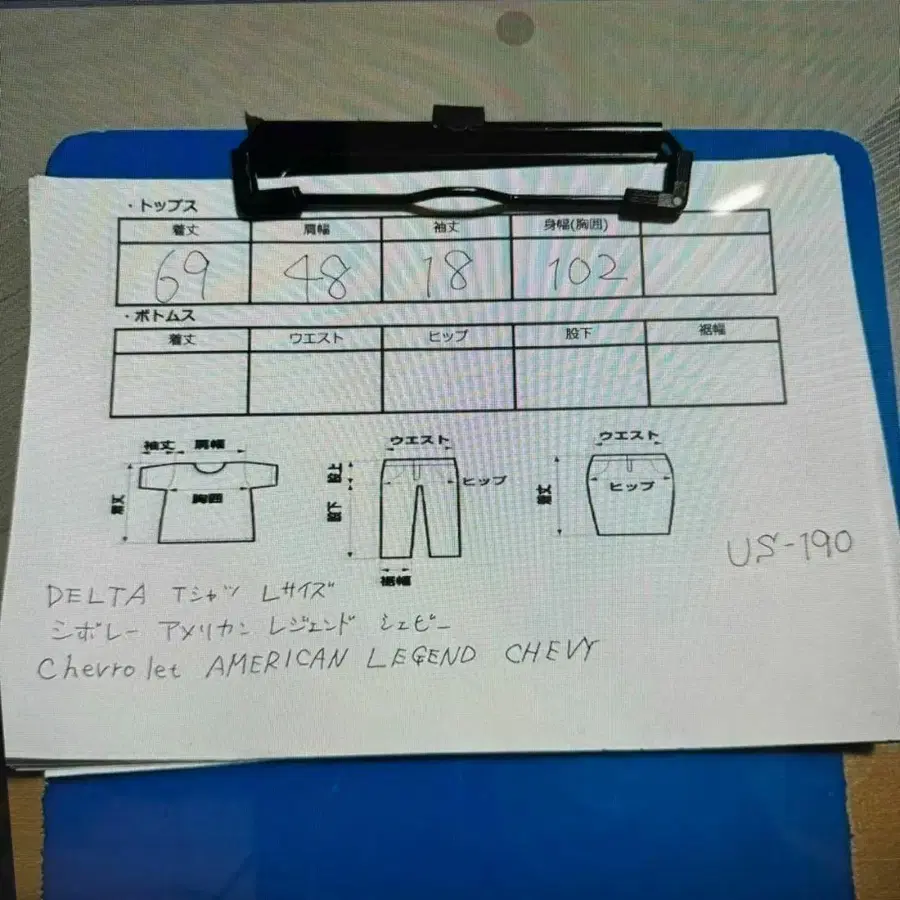 ・トップス
着丈 肩幅 袖丈 身幅(胸囲)
69 48 18 102
・ボトムス
着丈 ウエスト ヒップ 股下 裾幅
袖丈 肩幅
着丈 胸囲
ウエスト
股上 ヒップ
股下
裾幅
ウエスト
着丈 ヒップ
US-190
DELTA Tシャツ Lサイズ
シボレー アメリカン レジェンド シェビー
Chevrolet AMERICAN LEGEND CHEVY